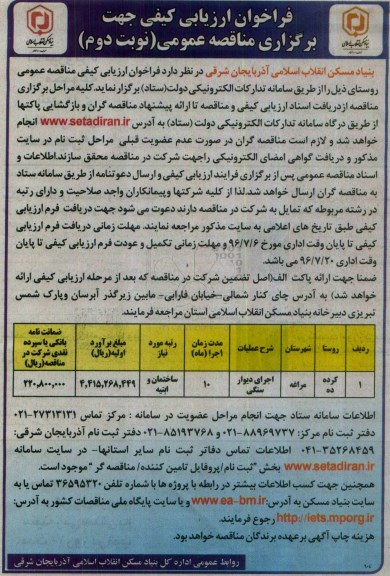 فراخوان ارزیابی کیفی جهت
برگزاری مناقصه عمومی(نوبت دوم)
بنیاد مسکن انقلاب اسلامی آذربایجان شرقی در نظر دارد فراخوان ارزیابی کیفی مناقصه عمومی
روستای ذیل را از طریق سامانه تدارکات الکترونیکی دولت(ستاد) برگزار نماید.کلیه مراحل برگزاری
مناقصه ازدریافت اسناد ارزیابی کیفی و مناقصه تا ارائه پیشنهاد مناقصه گران و بازگشایی پاکتها
از طریق درگاه سامانه تدارکات الکترونیکی دولت (ستاد) به آدرس www.setadiran.ir انجام
خواهد شد و لازم است مناقصه گران در صورت عدم عضویت قبلی مراحل ثبت نام در سایت
مذکور و دریافت گواهی امضای الکترونیکی راجهت شرکت در مناقصه محقق سازند.اطلاعات و
اسناد مناقصه عمومی پس از برگزاری فرایند ارزیابی کیفی و ارسال دعوتنامه از طریق سامانه ستاد
به مناقصه گران ارسال خواهد شد.لذا از کلیه شرکتها و پیمانکاران واجد صلاحیت و دارای رتبه
در رشته مربوطه که تمایل به شرکت در مناقصه دارند دعوت می شود جهت دریافت فرم ارزیابی
کیفی طبق تاریخ های اعلامی به سایت مذکور مراجعه نمایند. مهلت زمانی دریافت فرم ارزیابی
کیفی تا پایان وقت اداری مورخ ۹۶/۷/۶ و مهلت زمانی تکمیل و عودت فرم ارزیابی کیفی تا پایان
وقت اداری ۹۶/۷/۲۰ می باشد.
ضمنا جهت ارائه پاکت الف(اصل تضمین شرکت در مناقصه که بعد از مرحله ارزیابی کیفی ارائه
خواهد شد) به آدرس چای کنار شمالی-خیابان فارابی- مابین زیرگذر آبرسان وپارک شمس
تبریزی دبیرخانه بنیاد مسکن انقلاب اسلامی استان مراجعه فرمایند.
ردیف روستا شهرستان شرح عملیات مدت زمان اجرا (ماه) رتبه مورد نیاز مبلغ برآورد اولیه(ریال) ضمانت نامه بانکی یا سپرده نقدی شرکت در مناقصه(ریال)
۱ کرده ده مراغه اجرای دیوار سنگی ۱۰ ساختمان و ابنیه ۴,۴۱۵,۲۶۸,۴۴۹ ۲۲۰,۸۰۰,۰۰۰
اطلاعات سامانه ستاد جهت انجام مراحل عضویت در سامانه : مرکز تماس ۲۷۳۱۳۱۳۱-۰۲۱
دفتر ثبت نام مرکز: ۸۸۹۶۹۷۳۷-۰۲۱ و ۸۵۱۹۳۷۶۸-۰۲۱ دفتر ثبت نام آذربایجان شرقی:
۳۵۲۶۸۴۵۹-۰۴۱ اطلاعات تماس دفاتر ثبت نام سایر استانها- در سایت سامانه
www.setadiran.ir بخش "ثبت نام/پروفایل تامین کننده/ مناقصه گر" موجود است.
همچنین جهت کسب اطلاعات بیشتر در رابطه با پروژه ها با شماره تلفن ۳۶۵۹۵۳۲۰ تماس یا به
سایت بنیاد مسکن به آدرس: www.ea-bm.ir و یا سایت پایگاه ملی مناقصات کشور به آدرس:
http://iets.mporg.ir رجوع فرمایند.
هزینه چاپ آگهی بر عهده برندگان مناقصه خواهد بود.
روابط عمومی اداره کل بنیاد مسکن انقلاب اسلامی آذربایجان شرقی